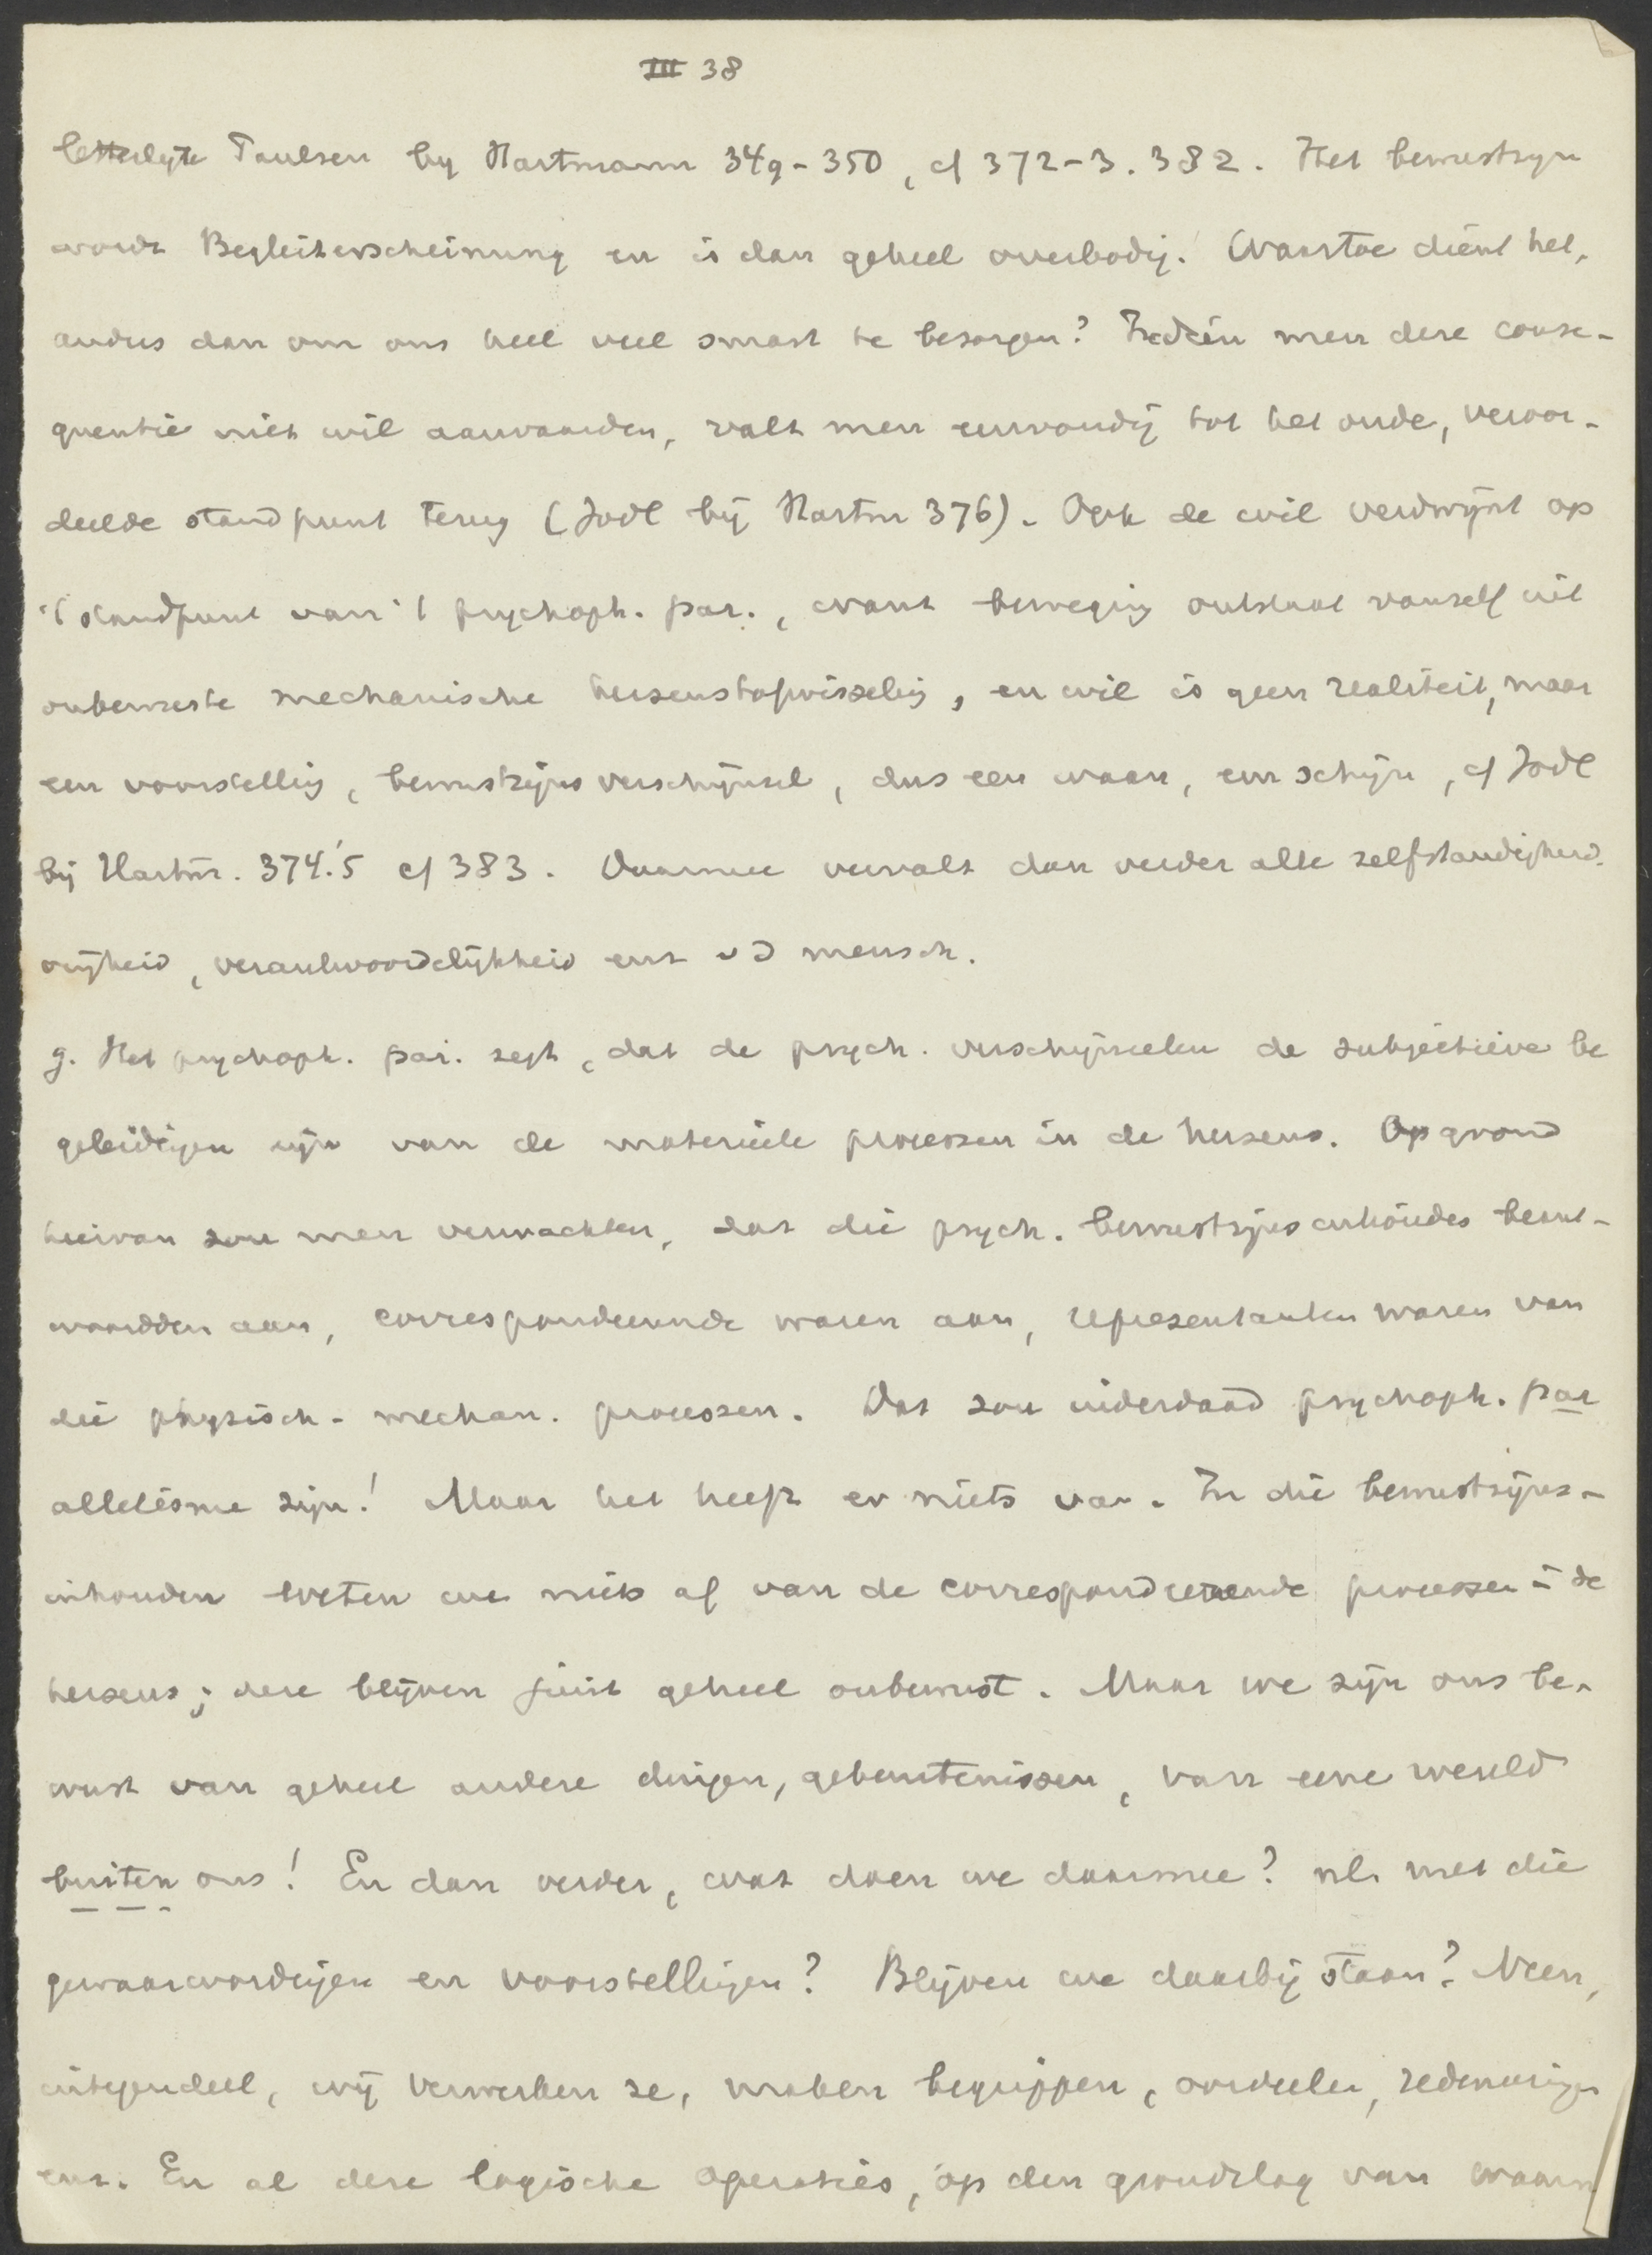 III 38
letterlyke Paulsen by Hartmann 349-350, cf 372-3. 382. Het bewustzyn
wordt Begleiterscheinung en is dan geheel overbodig. Waartoe dient het,
anders dan om ons heel veel smart te besorgen? Indien men deze conse-
quentie niet wil aanvaarden, valt men eenvoudig tot het oude, veroor-
deelde standpunt terug (Jodl bij Hartm 376). Ook de wil verdwijnt op
't standpunt van 't psychoph. par., want beweging ontstaat vanzelf uit
onbewuste mechanische hersenstofwisseling, en wil is geen realiteit, maar
een voorstelling, bewustzijnsverschijnsel, dus een waan, een schijn, cf Jodl
bij Hartm. 374.'5 cf 383. Daarmee vervalt dan verder alle zelfstandigheid
vrijheid, verantwoordelijkheid enz vd mensch.
g. Het psychoph. par. zegt, dat de psych. verschijnselen de subjectieve be
geleidigen zijn van de materieele processen in de hersens. Op grond
hiervan zou men verwachten, dat die psych. bewustzijns inhouden beant-
woordden aan, correspondeerende waren aan, representanten waren van
die physisch-mechan. processen. Dat zou inderdaad psychoph. par
allelisme zijn! Maar het heeft er niets van. In die bewustzijns-
inhouden weten we niets af van de correspondeerende processen in de
hersens; deze blijven juist geheel onbewust. Maar we zijn ons be-
wust van geheel andere dingen, gebeurtenissen, van eene wereld
buiten ons! En dan verder, wat doen we daarmee? nl. met die
gewaarwordingen en voorstellingen? Blijven we daarbij staan? Neen,
integendeel, wij verwerken ze, maken begrippen, oordeelen, redeneeringen
enz. En al deze logische operaties, op den grondslag van waarn